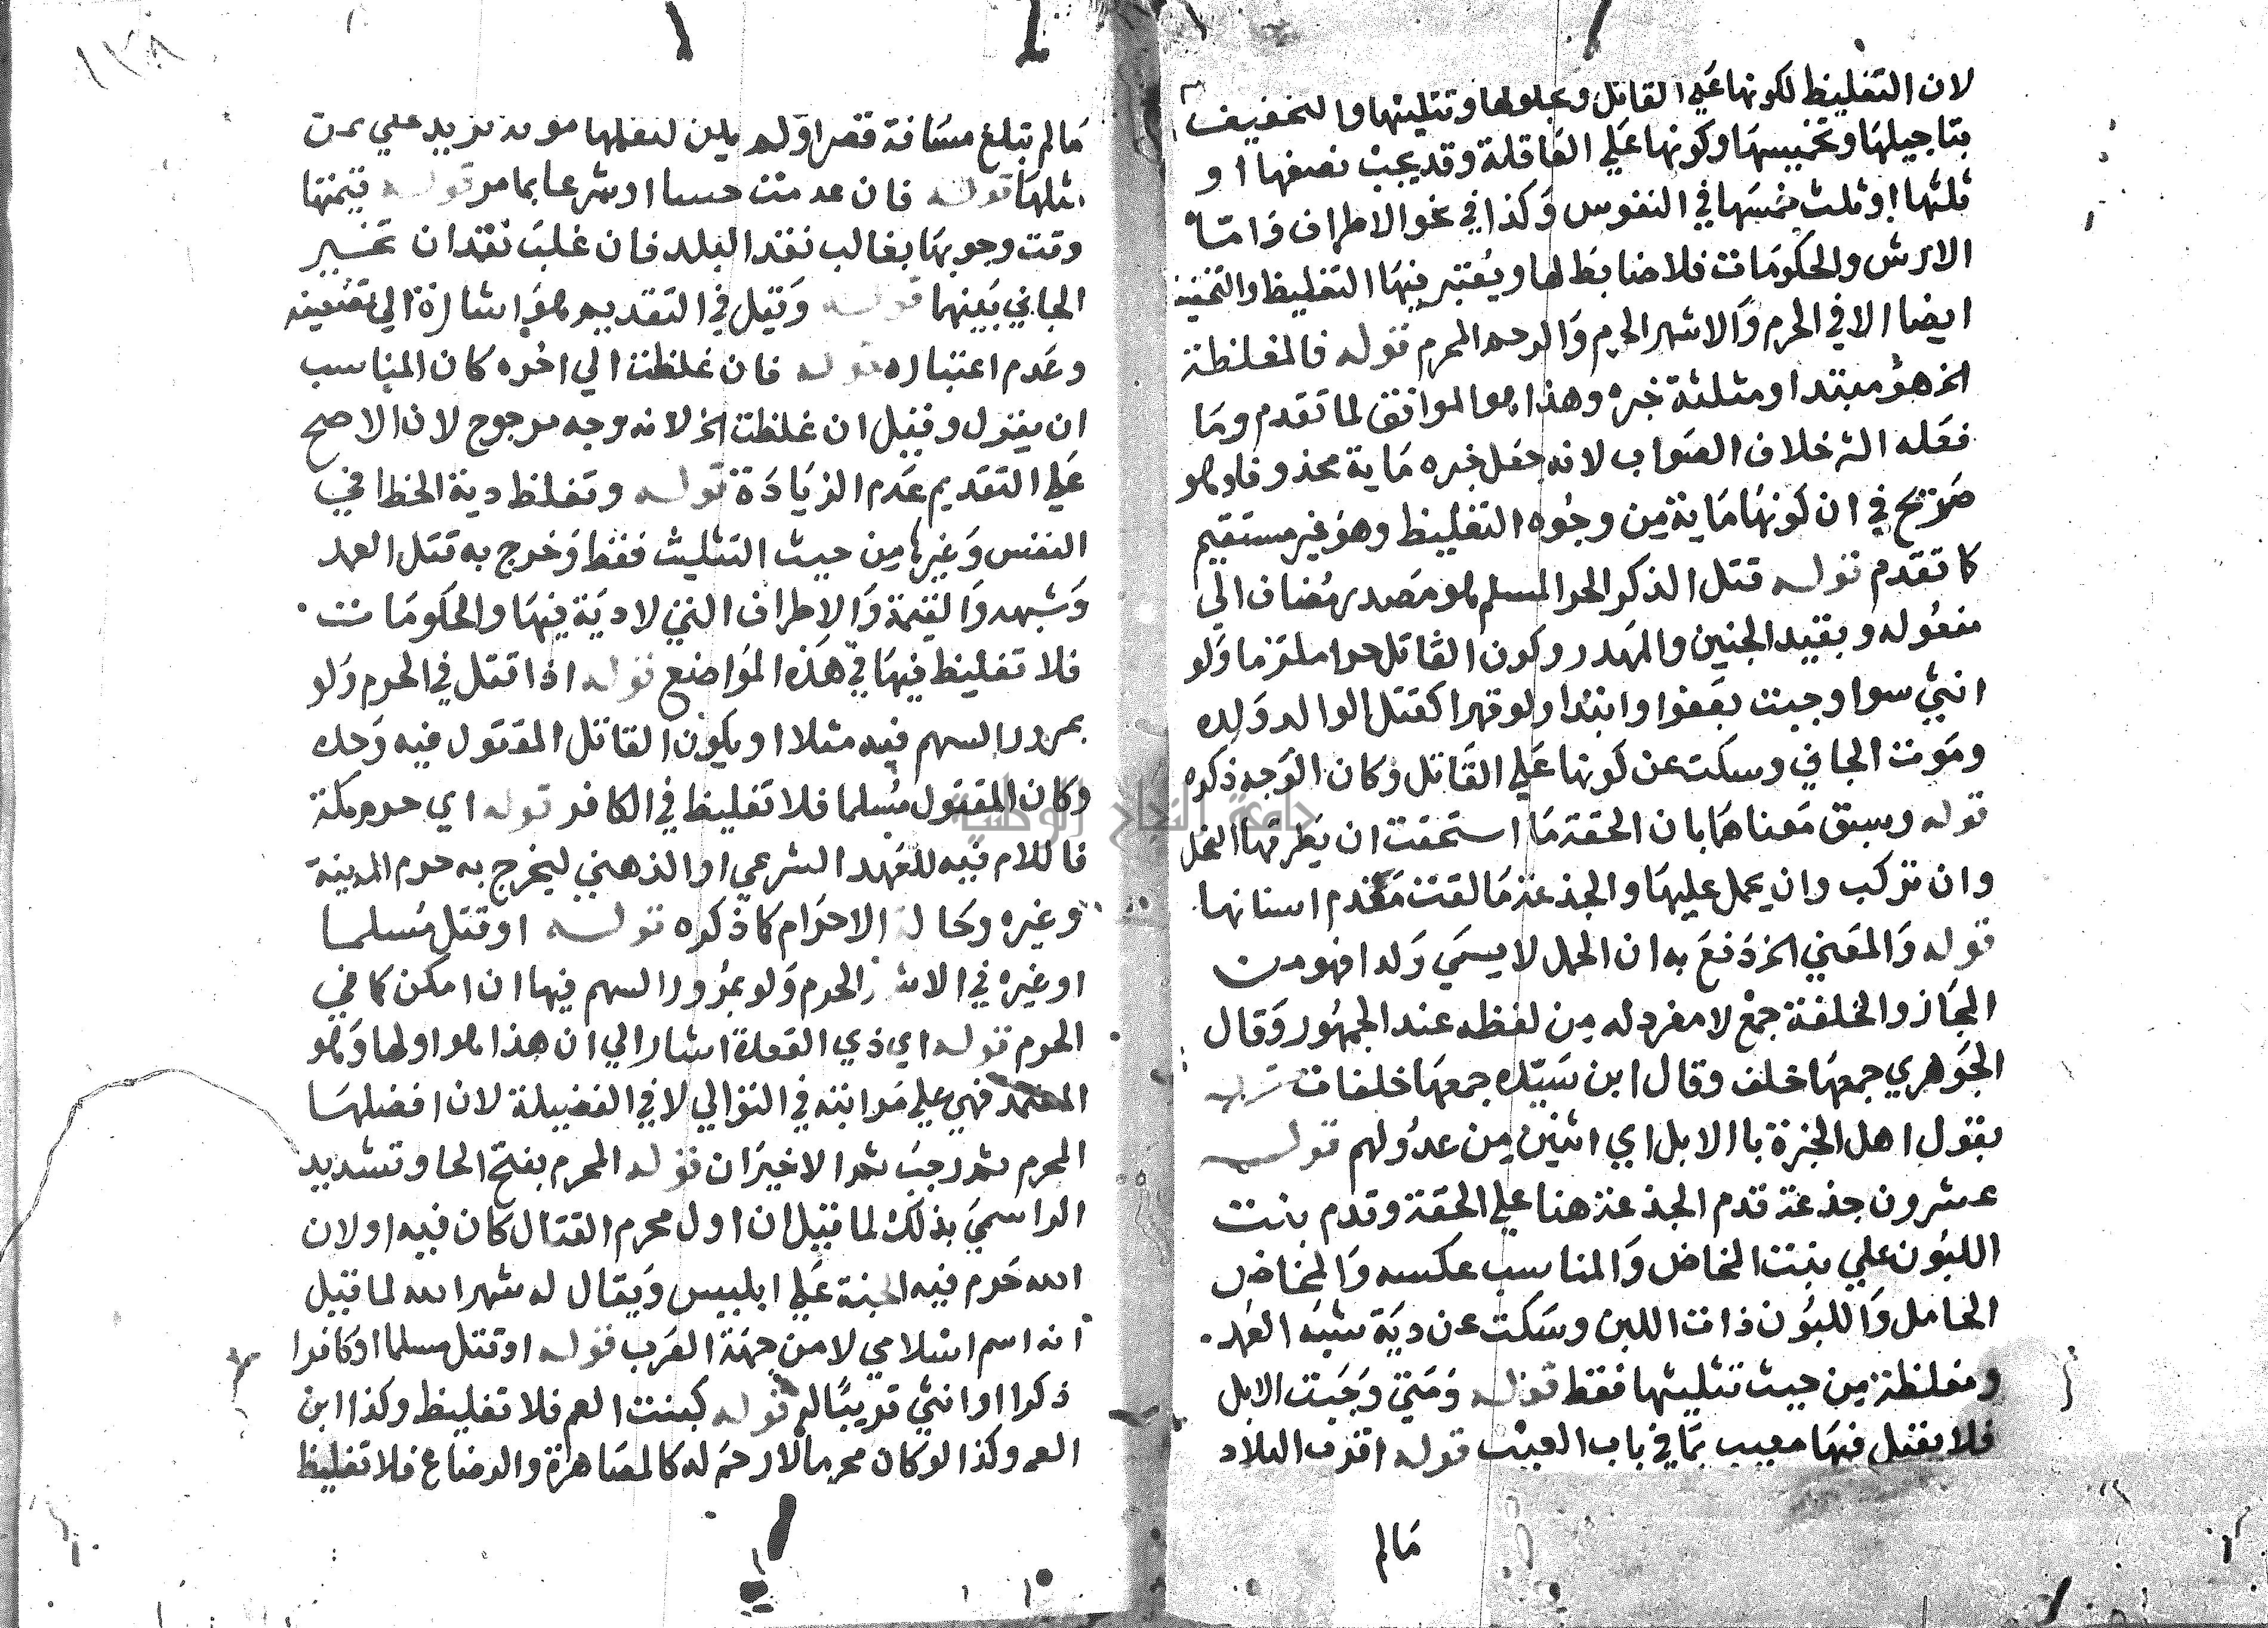 لان التغليظ لكونها علي القاتل وبحلولها وتثليثها والتخفيف
بتاجيلها وتخميسها وكونها علي العاقلة وقد يجب نصفها او
ثلثها او ثلث خمسها في النفوس وكذا في نحو الاطراف واما
الارش والحكومات فلا ضابط لها ويعتبر فيها التغليظ والتخفيف
ايضا الا في الحرم والاشهر الحرم والرحم المحرم قوله فالمغلظة
الخ هو مبتدا ومثلثة خبره وهذا هو الموافق لما تقدم وما
فعله الش خلاف الصواب لانه جعل خبره ماية محذوفا وهو
صريح في ان كونها ماية من وجوه التغليظ وهو غير مستقيم
كا تقدم قوله قتل الذكر الحر المسلم هو مصدر مضاف الي
مفعوله وبقيد الجنين والمهدر وكون القاتل حرا ملتزما ولو
انثي سوا وجبت بعفوا وابتدا ولو قهرا كقتل الوالد ولده
وموت الجاني وسكت عن كونها علي القاتل وكان الوجه ذكره
قوله وسبق معناهما بان الحقة ما استحقت ان يطرقها الفحل
وان تركب وان يحمل عليها والجذعة ما القت مقدم اسنانها
قوله والمعني الخ دفع به ان الحمل لا يسمي ولدا فهو من
المجاز والخلفة جمع لا مفرد له من لفظه عند الجمهور وقال
الجوهري جمعها خلف وقال ابن سيده جمعها خلفات قوله
بقول اهل الخبرة باالابل اي اثنين من عدولهم قوله
عشرون جذعة قدم الجذعة هنا علي الحقة وقدم بنت
اللبون علي بنت المخاض والمناسب عكسه والمخاض
الحامل واللبون ذات اللبن وسكت عن دية شبه العمد
ومغلظة من حيث تثليثها فقط قوله ومتي وجبت الابل
فلا يقبل فيها معيب بما في باب العيب قوله اقرب البلاد
مالم
١٣٨
مالم تبلغ مسافة قصر اولم يلن لنقلها مونة تزيد علي ثمن
مثلها قوله فان عدمت حسا او شرعا بما مر قوله قيمتها
وقت وجوبها بغالب نقد البلد فان غلب نقدان تخير
الجاني بينهما قوله وقيل في التقديم هو اشارة الي تضعيفه
وعدم اعتباره قوله فان غلظت الي اخره كان المناسب
ان يقول وقيل ان غلظت الخ لانه وجه مرجوح لان الاصح
علي التقديم عدم الزيادة قوله وتغلظ دية الخطا في
النفس وغيرها من حيث التثليث فقط وخرج به قتل العمد
وشبهه والقيمة والاطراف التي لا دية فيها والحكومات
فلا تغليظ فيها في هذه المواضع قوله اذا قتل في الحرم ولو
بمرور السهم فيه مثلا او يكون القاتل المقتول فيه وحده
وكان المقتول مسلما فلا تغليظ في الكافر قوله اي حرم مكة
فاللام فيه للعهد الشرعي او الذهني ليخرج به حرم المدينة
وغيره وحالة الاحرام كا ذكره قوله او قتل مسلما
او غيره في الاشهر الحرم ولو بمرور السهم فيها ان امكن كما في
الحرم قوله اي ذي القعدة اشار الي ان هذا هو اولها وهو
المعتمد فهي علي مرابتة في التوالي لا في الفضيلة لان افضلها
المحرم ثم رجب ثم الاخيران قوله المحرم بفتح الحا وتشديد
الرا سمي بذلك لما قيل ان اول محرم القتال كان فيه او لان
الله حرم فيه الجنة علي ابليس ويقال له شهر الله لما قيل
انه اسم اسلامي لا من جهة العرب قوله او قتل مسلما او كافرا
ذكرا او انثي قريبا له قوله كبنت العم فلا تغليظ وكذا ابن
العم وكذا لو كان محرما لا رحم له كالمصاهرة والرضاع فلا تغليظ
جامعة النجاح الوطنية